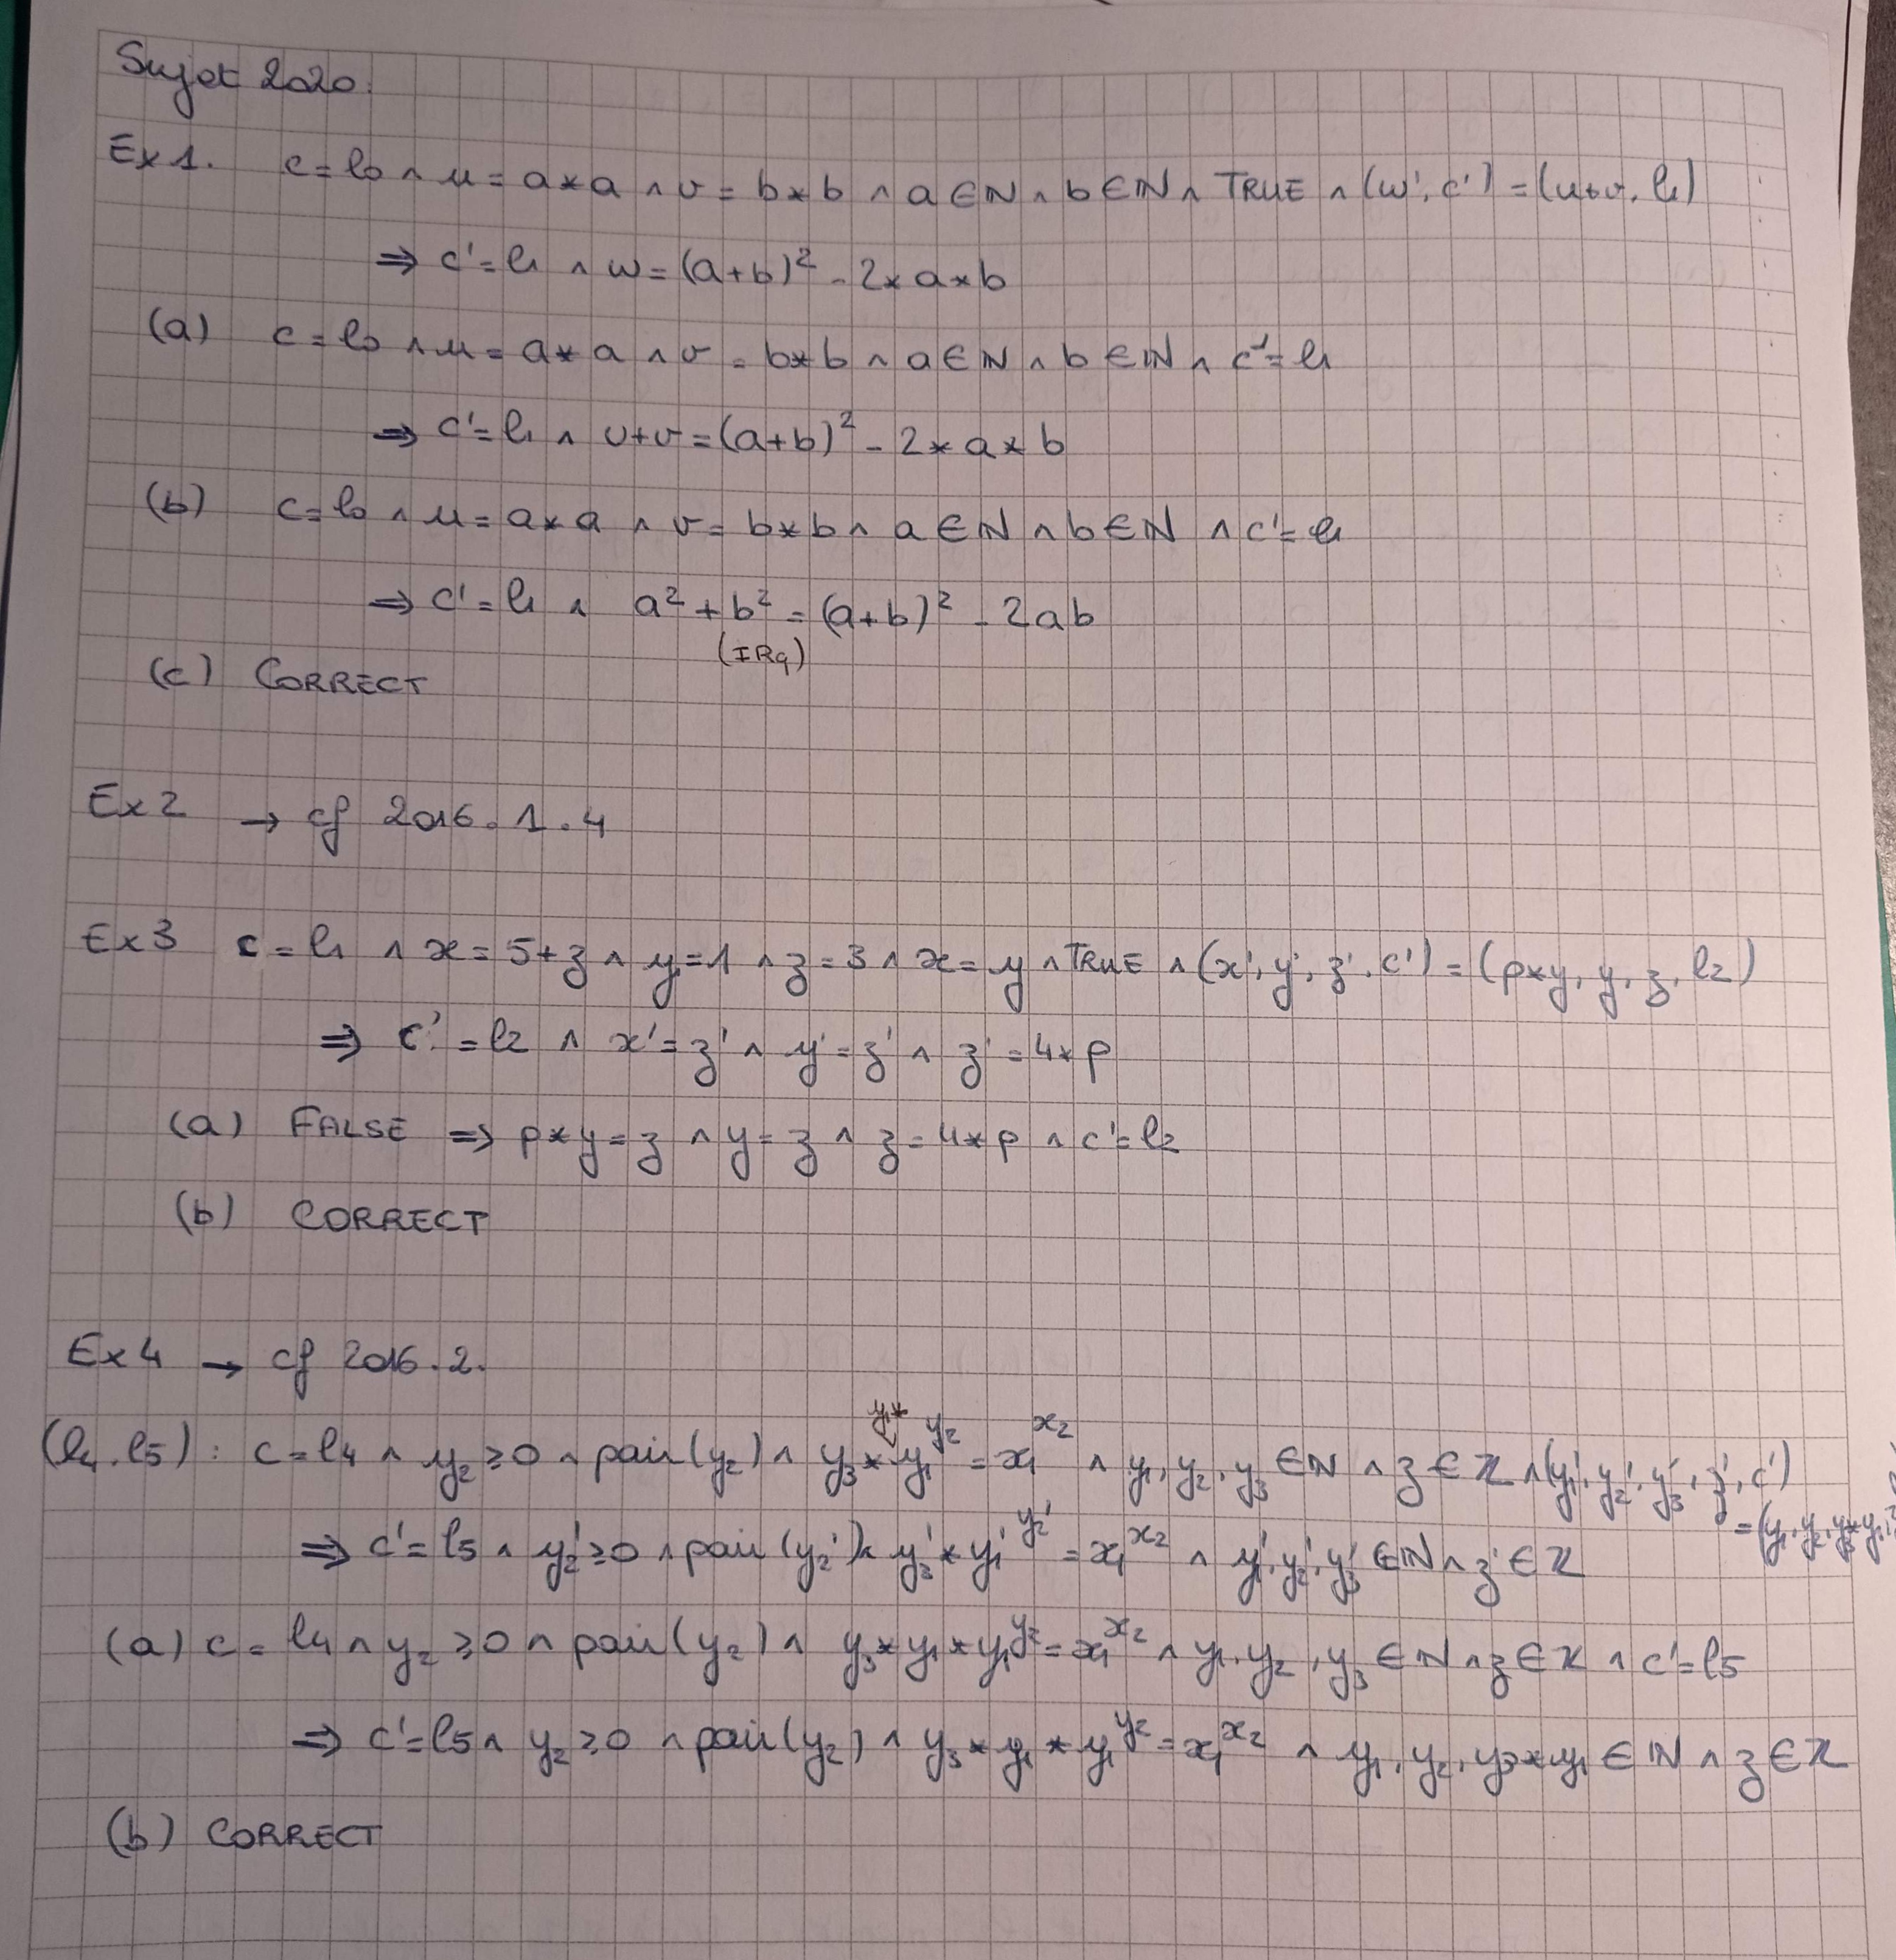 Sujet 2020.
Ex 1. c = l0 ∧ u = a * a ∧ v = b * b ∧ a ∈ ℕ ∧ b ∈ ℕ ∧ TRUE ∧ (w', c') = (u+v, l1)
⇒ c' = l1 ∧ w = (a+b)² - 2 * a * b
(a) c = l0 ∧ u = a * a ∧ v = b * b ∧ a ∈ ℕ ∧ b ∈ ℕ ∧ c' = l1
⇒ c' = l1 ∧ u+v = (a+b)² - 2 * a * b
(b) c = l0 ∧ u = a * a ∧ v = b * b ∧ a ∈ ℕ ∧ b ∈ ℕ ∧ c' = l1
⇒ c' = l1 ∧ a² + b² = (a+b)² - 2ab
(c) CORRECT
Ex 2 → cf 2016.1.4
Ex 3 c = l1 ∧ x = 5+z ∧ y = 1 ∧ z = 3 ∧ x = y ∧ TRUE ∧ (x', y', z', c') = (p*y, y, z, l2)
⇒ c' = l2 ∧ x' = z' ∧ y' = z' ∧ z' = 4 * p
(a) FALSE ⇒ p * y = z ∧ y = z ∧ z = 4 * p ∧ c' = l2
(b) CORRECT
Ex 4 → cf 2016.2.
(l4, l5) : c = l4 ∧ y₂ ≥ 0 ∧ pair(y₂) ∧ y₃ * y₁ * y₁^y₂ = x₁^x₂ ∧ y₁, y₂, y₃ ∈ ℕ ∧ z ∈ ℤ ∧ (y₁', y₂', y₃', z', c')
= (y₁, y₂, y₃*y₁,
⇒ c' = l5 ∧ y₂' ≥ 0 ∧ pair(y₂') ∧ y₃' * y₁'^y₂' = x₁^x₂ ∧ y₁', y₂', y₃' ∈ ℕ ∧ z' ∈ ℤ
(a) c = l4 ∧ y₂ ≥ 0 ∧ pair(y₂) ∧ y₃ * y₁ * y₁^y₂ = x₁^x₂ ∧ y₁, y₂, y₃ ∈ ℕ ∧ z ∈ ℤ ∧ c' = l5
⇒ c' = l5 ∧ y₂ ≥ 0 ∧ pair(y₂) ∧ y₃ * y₁ * y₁^y₂ = x₁^x₂ ∧ y₁, y₂, y₃*y₁ ∈ ℕ ∧ z ∈ ℤ
(b) CORRECT